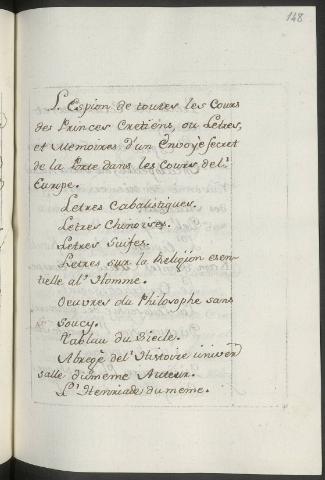 148
L'Espion de toutes les Cours
des Princes Cretiéns, ou Letres,
et Memoires d'un Envoyè secret
de la Porte dans les Cours del'
Europe.
Letres Cabalistiques.
Letres Chinoises.
Letres Suises.
Letres sur la Religion esen-
tielle al'Homme.
Oeuvres du Philosophe sans
Soucy.
Tablau du Siecle.
Abregè del'Histoire univer
salle dumeme Auteur.
L'Henriade, du meme.